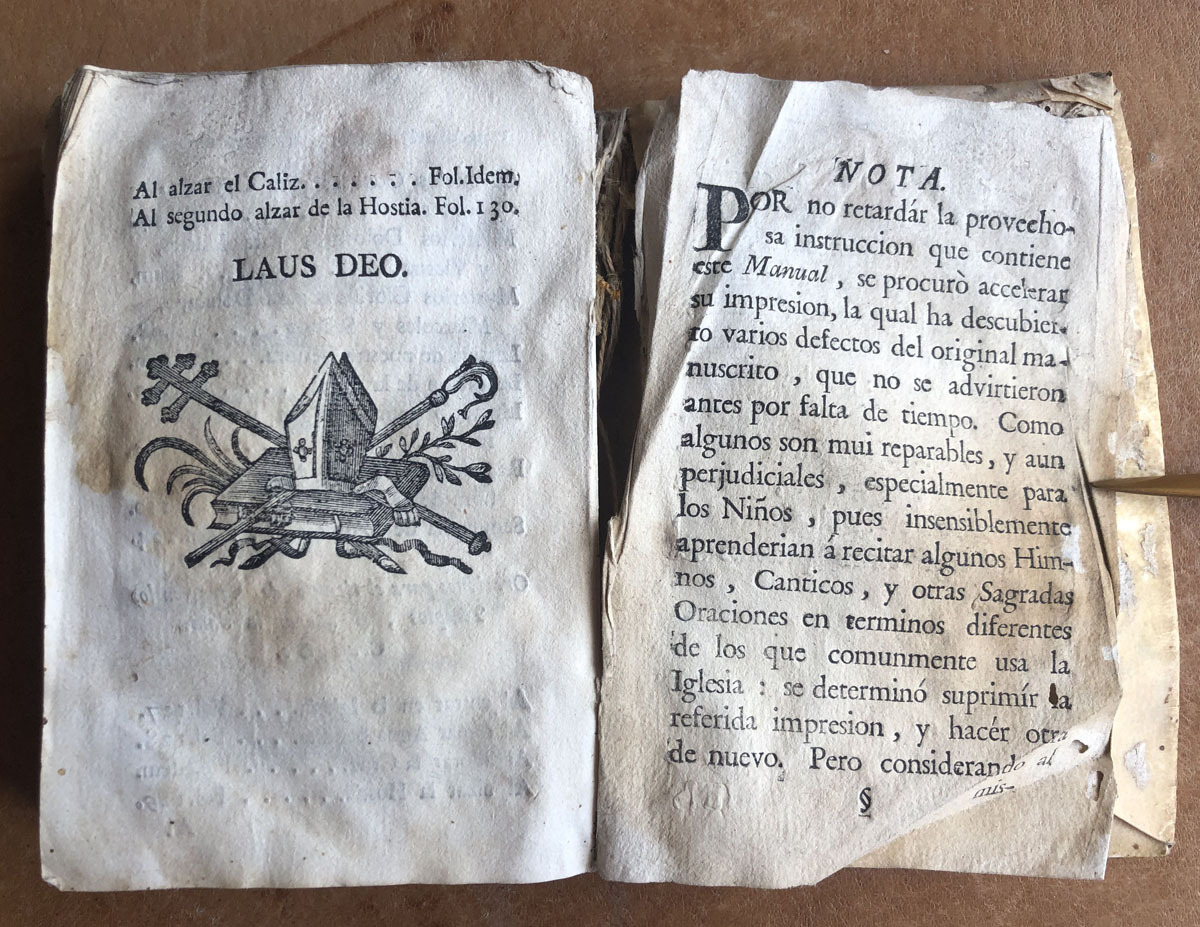 Al alzar el Caliz. . . . . . . Fol. Idem.
Al segundo alzar de la Hostia. Fol. 130.
LAUS DEO.
NOTA.
POR no retardár la provecho-
sa instruccion que contiene
este Manual, se procurò accelerar
su impresion, la qual ha descubier-
to varios defectos del original ma-
nuscrito, que no se advirtieron
antes por falta de tiempo. Como
algunos son mui reparables, y aun
perjudiciales, especialmente para
los Niños, pues insensiblemente
aprenderian á recitar algunos Him-
nos, Canticos, y otras Sagradas
Oraciones en terminos diferentes
de los que comunmente usa la
Iglesia: se determinó suprimír la
referida impresion, y hacér otra
de nuevo. Pero considerando al
§ mis-